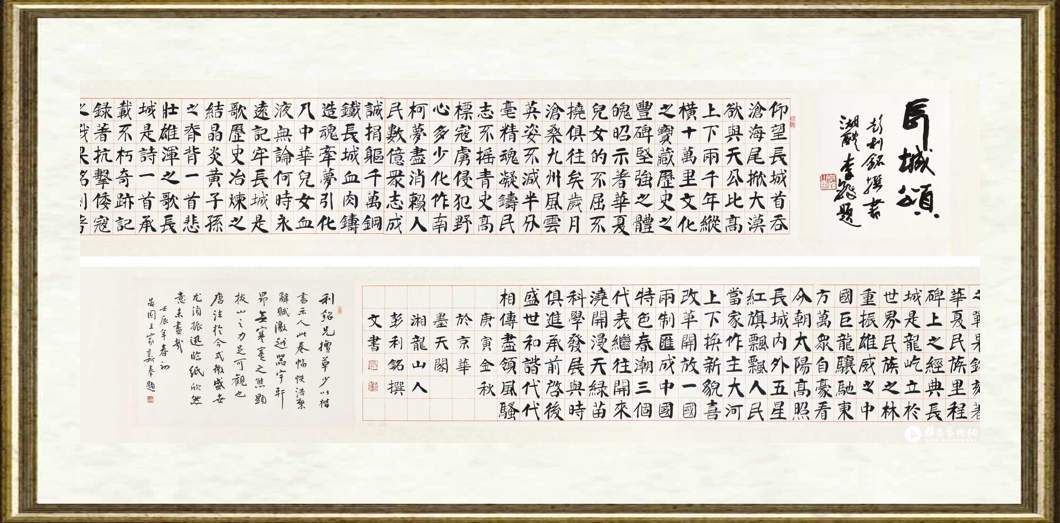 長城頌
彭利銘撰書
仰望長城首吞
滄海尾掀大漠
欲與天公比高
上下兩千年縱
橫十萬里文化
之寶藏歷史之
豐碑堅強之體
魄昭示著華夏
兒女的不屈不
撓俱往矣歲月
滄桑九州風雲
英姿不減半分
毫精魂凝鑄民
志不搖青史高
標寇虜侵犯野
心多少化作南
柯夢盡消賴人
民數億衆志成
誠捐軀千萬銅
鐵長城血肉鑄
造魂牽夢引化
入中華兒女血
液無論何時永
遠記牢長城是
歌歷史冶煉之
結晶炎黃子孫
之脊背一首悲
壯雄渾之歌長
城是詩一首承
載不朽奇跡記
錄著抗擊倭寇
之戰果銘刻著
華夏民族里程
碑上之經典長
城是龍屹立於
世界民族之林
重振雄威之中
國巨龍驤馳東
方萬衆自豪看
今朝太陽高照
長城內外五星
紅旗飄飄人民
當家作主大河
上下換新貌喜
改革開放一國
兩制匯成中國
特色春潮三個
代表繼往開來
澆開浸天綠苗
科學發展與時
俱進承前啓後
盛世和諧代代
相傳盡領風騷
庚寅金秋
於京華
墨天閣
湘龍山人
彭利銘撰
文書
利銘兄擅草少以楷
書示人此卷幅恢浩繁
辭賦激越器宇軒
昂無寒蹇之態顯
拔山之力足可觀也
唐法於今式微
尤須振迅臨紙欣然
意未盡哉
壬辰年春初